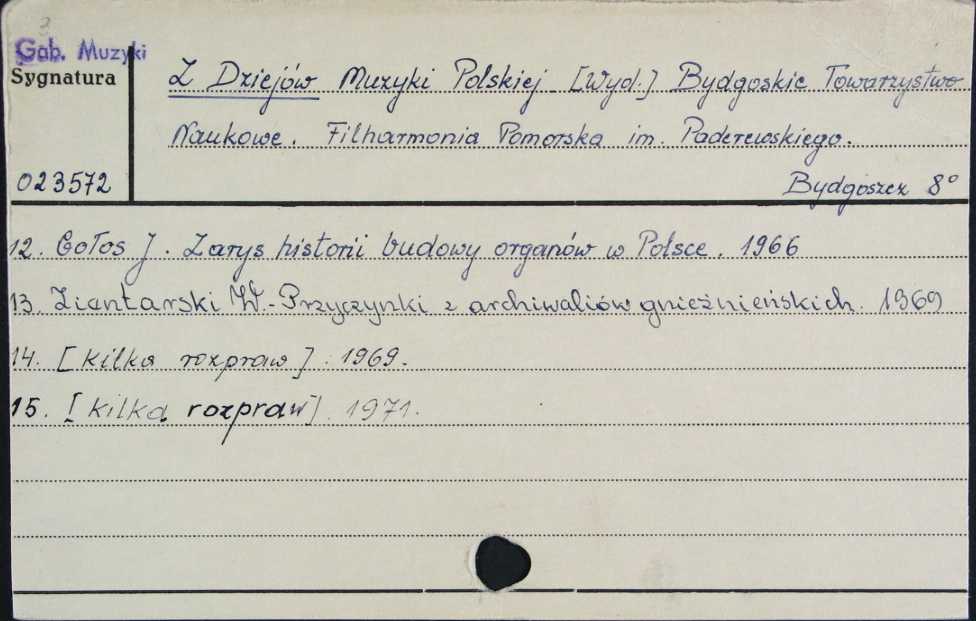 3
Gab. Muzyki
Sygnatura
023572
Z Dziejów Muzyki Polskiej [Wyd.] Bydgoskie Towarzystwo
Naukowe. Filharmonia Pomorska im. Paderewskiego.
Bydgoszcz 8°
12. Gołos J. Zarys historii budowy organów w Polsce. 1966
13. Zientarski W.- Przyczynki z archiwaliów gnieźnieńskich. 1969
14. [Kilka rozpraw]. 1969.
15. [Kilka rozpraw]. 1971.